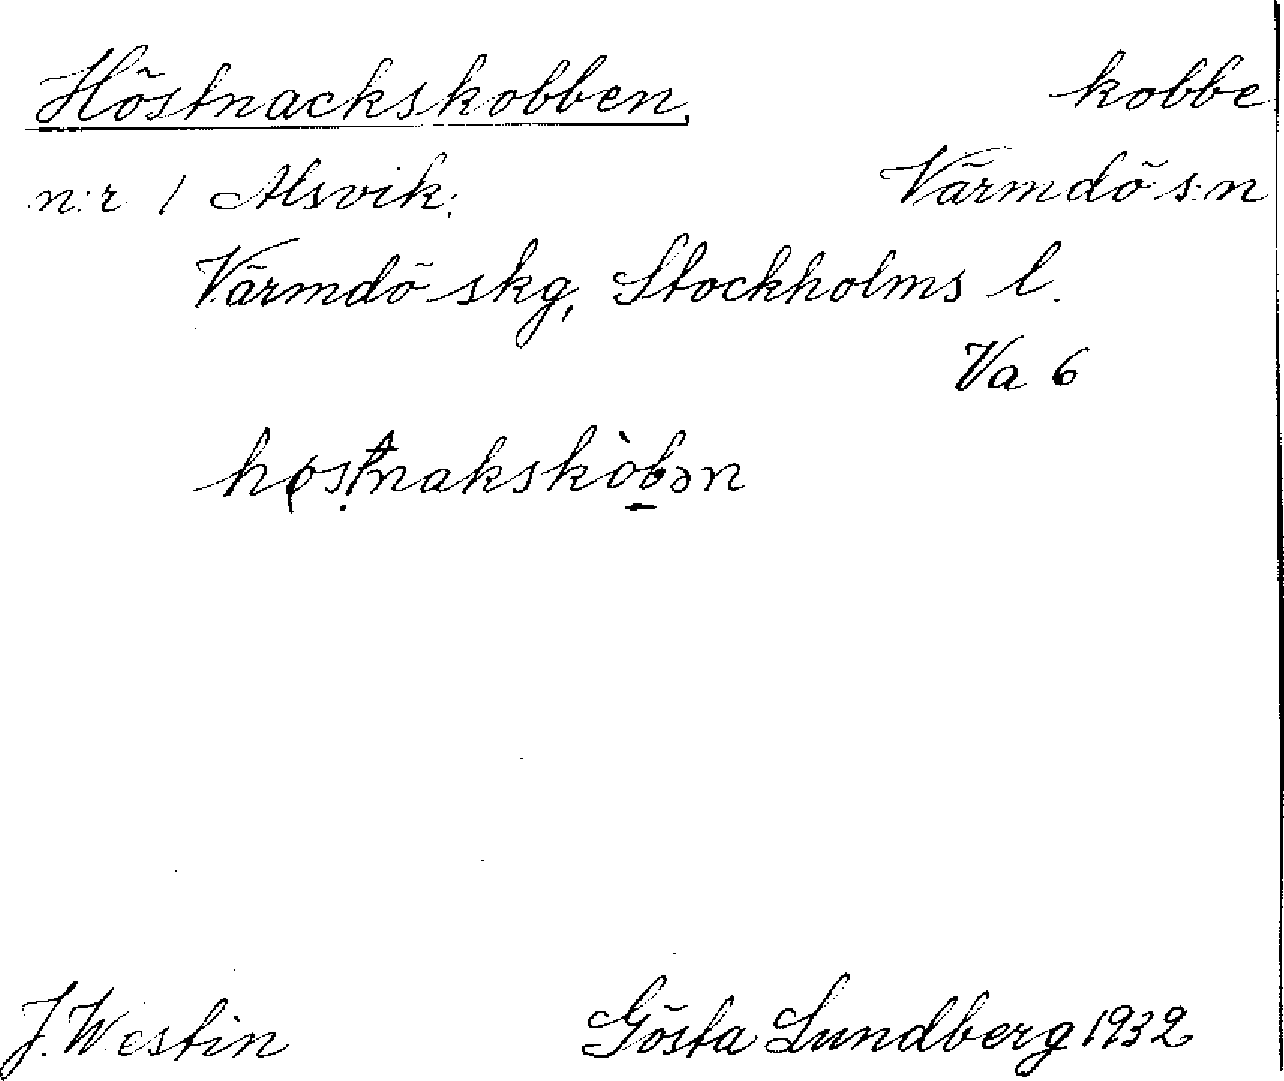 Höstnackskobben, kobbe
n:r 1 Alsvik; Värmdö s:n
Värmdö skg, Stockholms l.
Va 6
høstnakskòbən
J. Westin Gösta Lundberg 1932